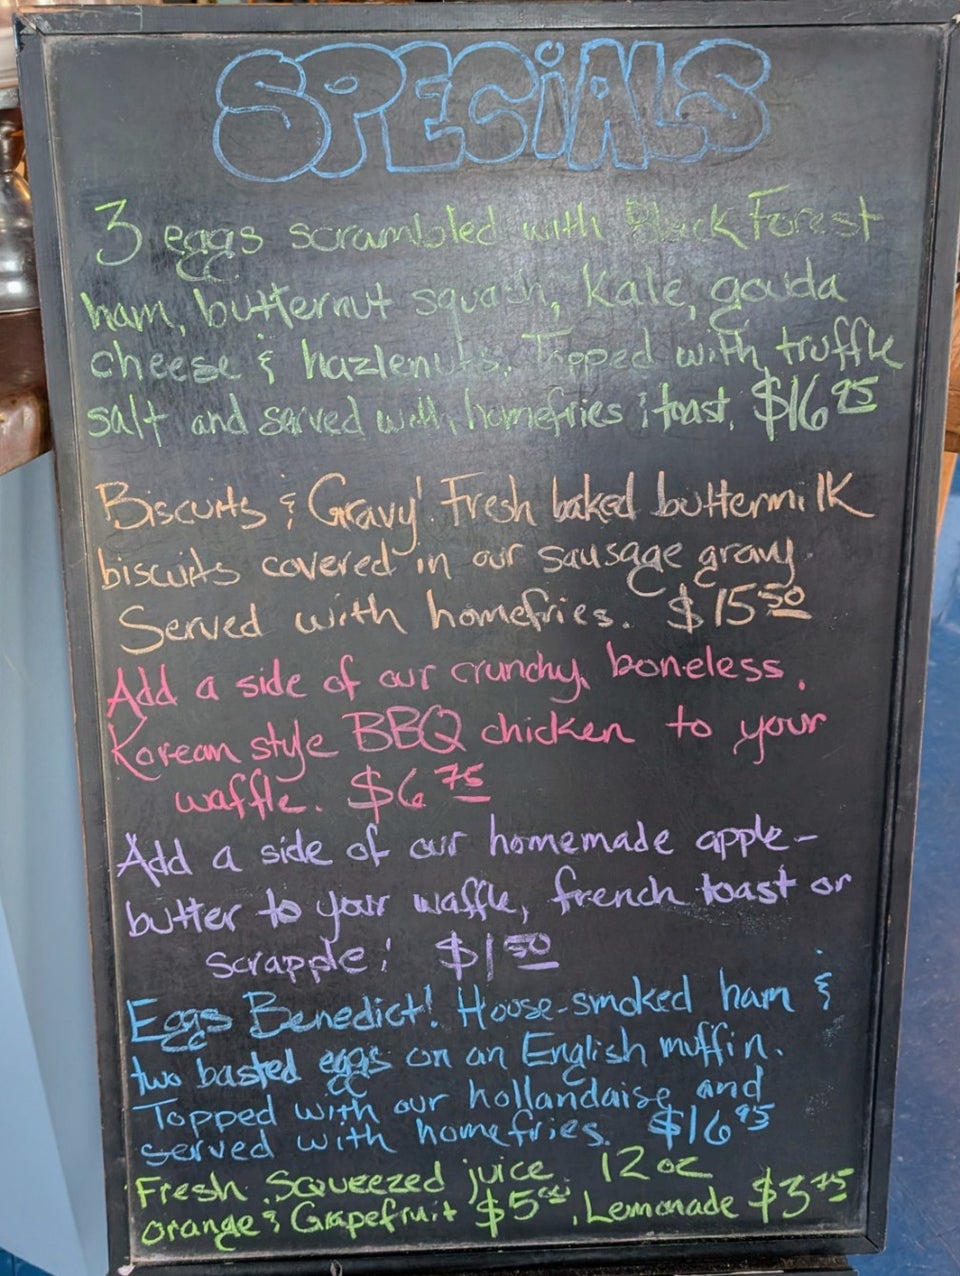 SPECiALS
3 eggs scrambled with Black Forest
ham, butternut squash, kale, gouda
cheese & hazlenuts. Topped with truffle
salt and served with homefries & toast. $16 95
Biscuits & Gravy! Fresh baked buttermilk
biscuits covered in our sausage gravy.
Served with homefries. $15 50
Add a side of our crunchy, boneless,
Korean style BBQ chicken to your
waffle. $6 75
Add a side of our homemade apple-
butter to your waffle, french toast or
scrapple! $1 50
Eggs Benedict! House-smoked ham &
two basted eggs on an English muffin.
Topped with our hollandaise and
served with homefries. $16 95
Fresh Squeezed juice 12oz
orange & Grapefruit $5 00, Lemonade $3 75